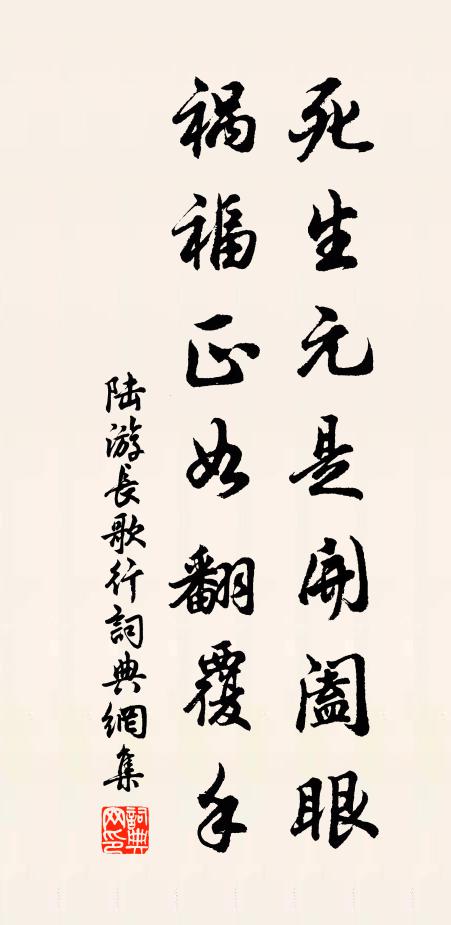 死生元是開闔眼
禍福正如翻覆手
陸游長歌行詞典網集
詞典网印